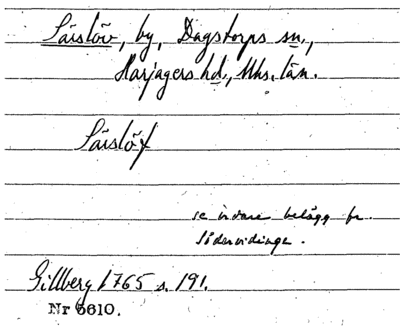 Särslöv, by, Dagstorps sn.,
Harjagers hd., Mhs. län.
Särslöf
se vidare belägg fr.
Södervidinge.
Gillberg 1765 s. 191.
Nr 6610.